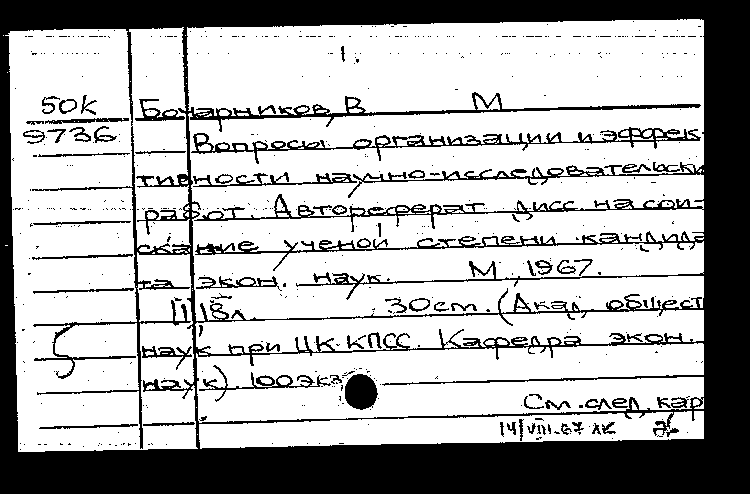 1.
50к Бочарников, В М
9736 Вопросы организации и эффек-
тивности научно-исследовательски
работ. Автореферат дисс. на сои-
скание ученой степени кандида
та экон. наук. М., 1967.
18л. 30 cm. (Акад. общест
5 наук при ЦК КПСС. Кафедра экон.
наук). 100 экз
См. след. кар
14/VIII-67 лк